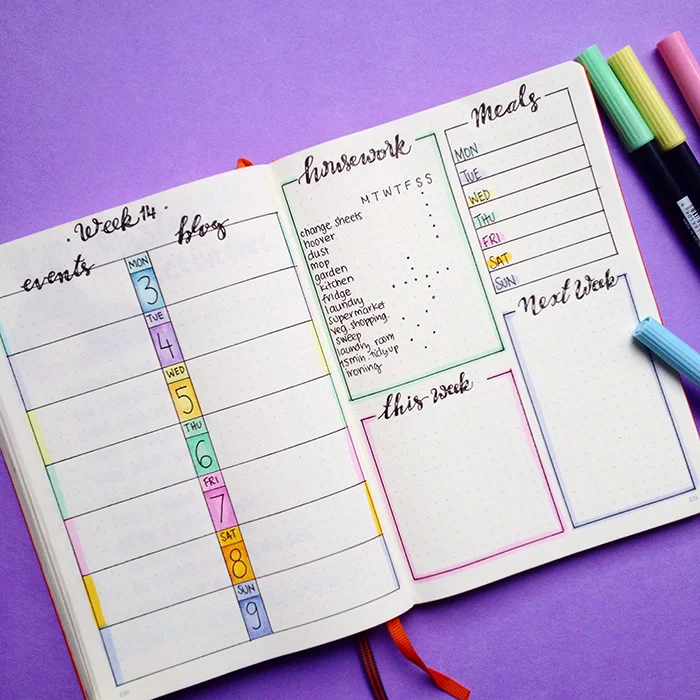 · Week 14 ·
events
blog
MON
3
TUE
4
WED
5
THU
6
FRI
7
SAT
8
SUN
9
housework
M T W T F S S
change sheets
hoover
dust
mop
garden
kitchen
fridge
laundry
supermarket
veg. shopping
sweep
laundry room
15 min. tidy up
ironing
Meals
MON
TUE
WED
THU
FRI
SAT
SUN
this week
Next Week